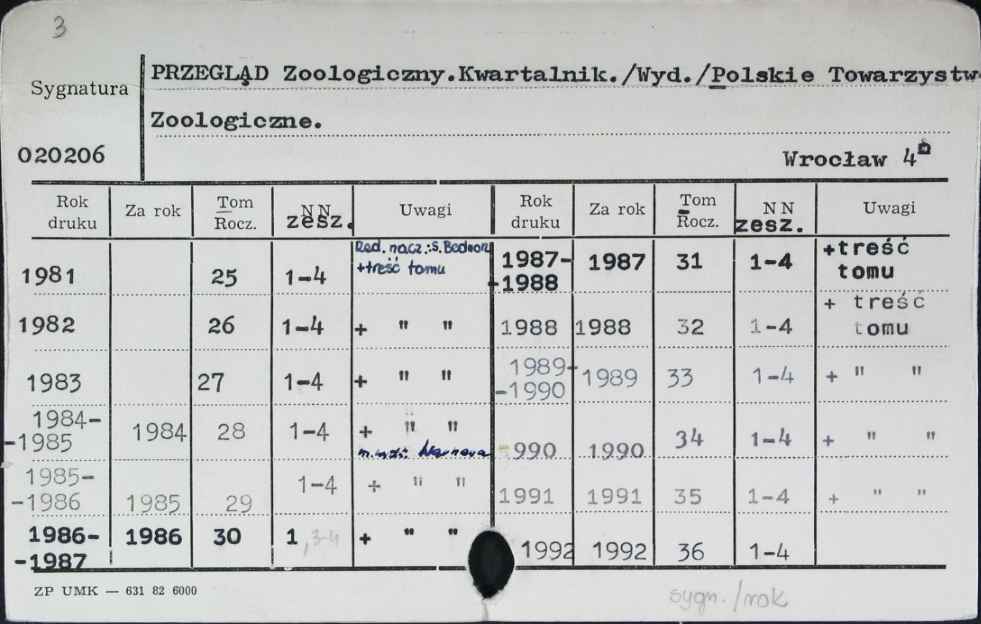 3
PRZEGLĄD Zoologiczny.Kwartalnik./Wyd./Polskie Towarzystw
Sygnatura
Zoologiczne.
020206
Wrocław 4
Rok druku Za rok Tom Rocz. NN zesz. Uwagi Rok druku Za rok Tom Rocz. NN zesz. Uwagi
1981 25 1-4 Red. nacz.: S. +treść tomu 1987--1988 1987 31 1-4 +treść tomu
1982 26 1-4 + " " 1988 1988 32 1-4 + treść tomu
1983 27 1-4 + " " 1989--1990 1989 33 1-4 + " "
1984--1985 1984 28 1-4 + " " 990 1990 34 1-4 + " "
1985--1986 1985 29 1-4 + " " 1991 1991 35 1-4 + " "
1986--1987 1986 30 1,3-4 + " " 1992 1992 36 1-4
ZP UMK — 631 82 6000
sygn./rok